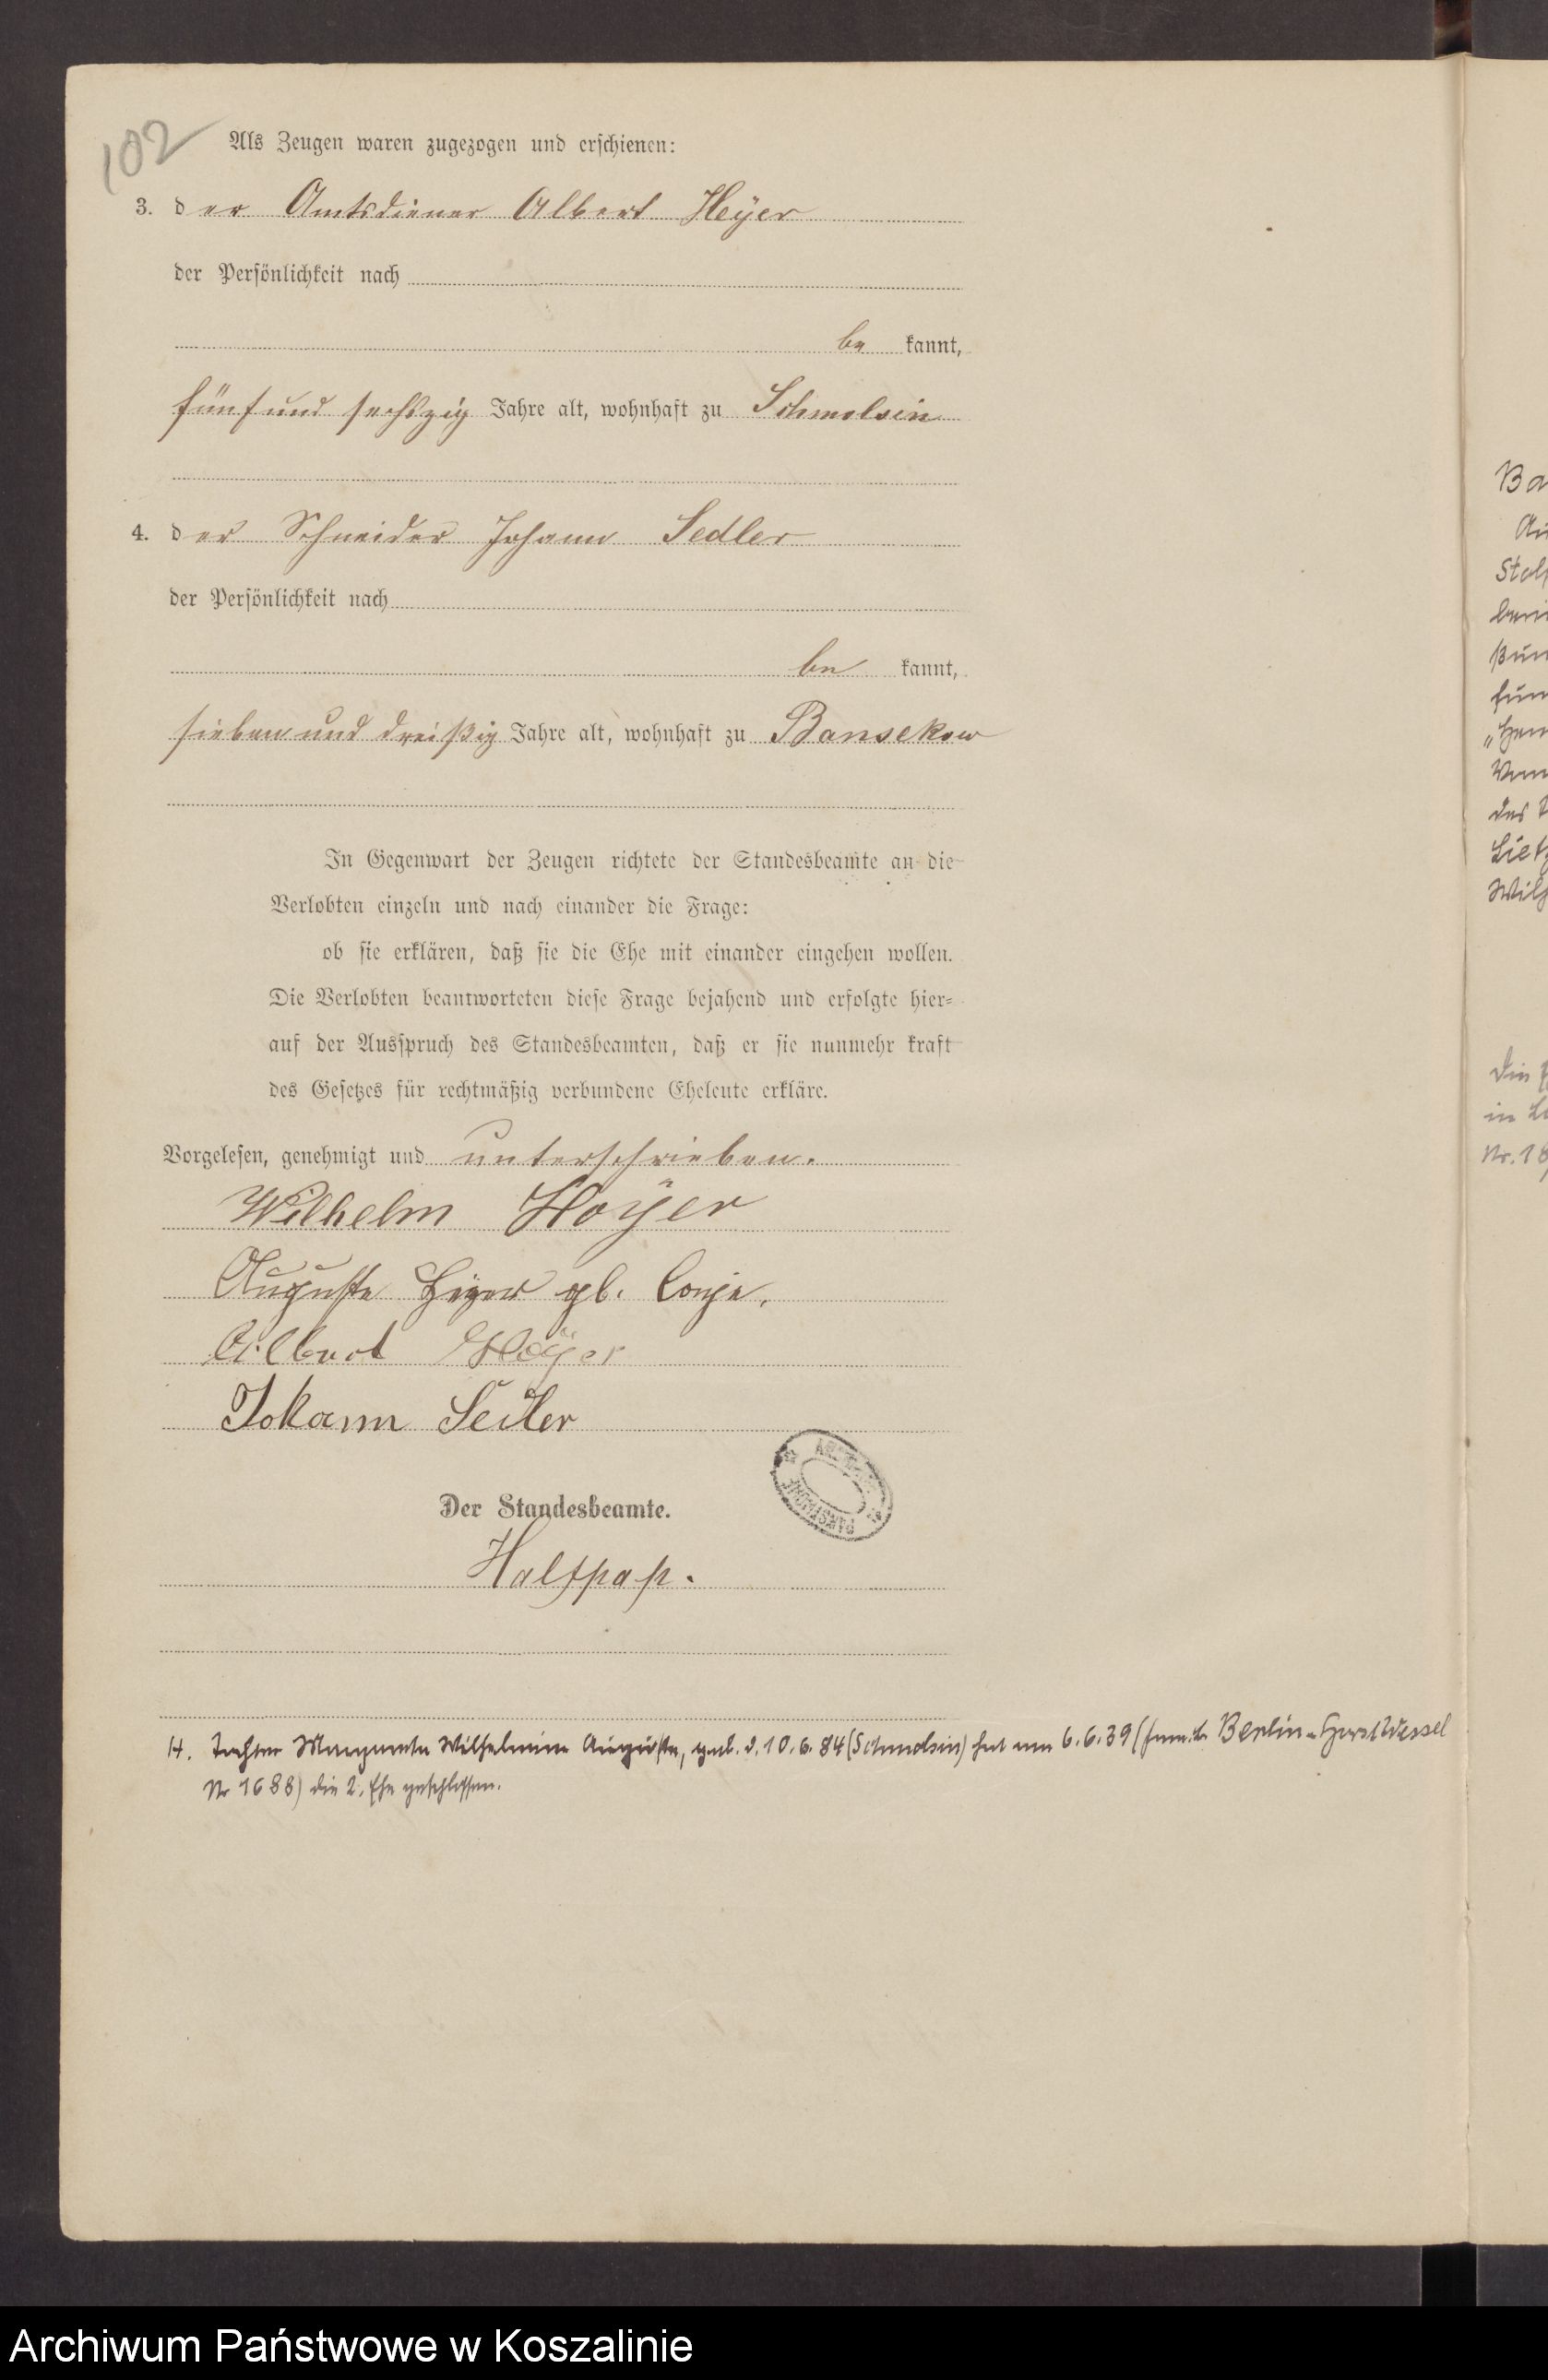 102
Als Zeugen waren zugezogen und erschienen:
3. der Amtsdiener Albert Heÿer
der Persönlichkeit nach
be kannt,
fünfund sechszig Jahre alt, wohnhaft zu Schmolsin
4. der Schneider Johann Sedler
der Persönlichkeit nach
be kannt,
siebenund dreißig Jahre alt, wohnhaft zu Bansekow
In Gegenwart der Zeugen richtete der Standesbeamte an die
Verlobten einzeln und nach einander die Frage:
ob sie erklären, daß sie die Ehe mit einander eingehen wollen.
Die Verlobten beantworteten diese Frage bejahend und erfolgte hier=
auf der Ausspruch des Standesbeamten, daß er sie nunmehr kraft
des Gesetzes für rechtmäßig verbundene Eheleute erkläre.
Vorgelesen, genehmigt und unterschrieben.
Wilhelm Hoÿer
Auguste gb.
Albert Hoÿer
Johann Sedler
Der Standesbeamte.
Halfpap.
H. Tochter Margarete Wilhelmine Auguste, geb. d. 10.6.84 (Schmolsin) hat am 6.6.39 (Berlin-Horst Wessel
Nr 1688) die 2. Ehe geschlossen.
Archiwum Państwowe w Koszalinie